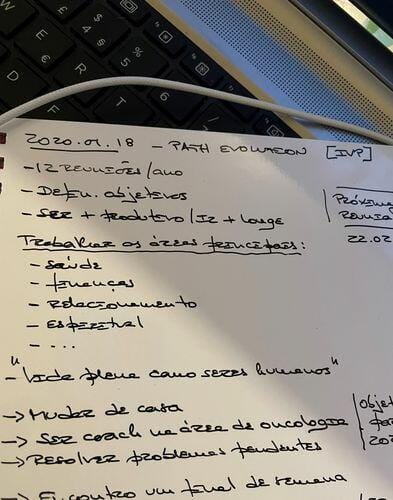 W
E
R
T
D
F
$
4
%
5
6
2020.01.18 - PATH EVOLUTION [IVP]
- 12 REUNIÕES/ANO
- Defin. objetivos
- SER + produtivo / IR + longe
Próxima
Reunião
22.02
Trabalhar as áreas principais:
- saúde
- finanças
- Relacionamento
- Espiritual
- ...
"- Vida plena como seres humanos"
→ Mudar de casa
→ Ser coach na área de oncologia
→ Resolver problemas pendentes
objet
para
202
→ Encontro um final de semana